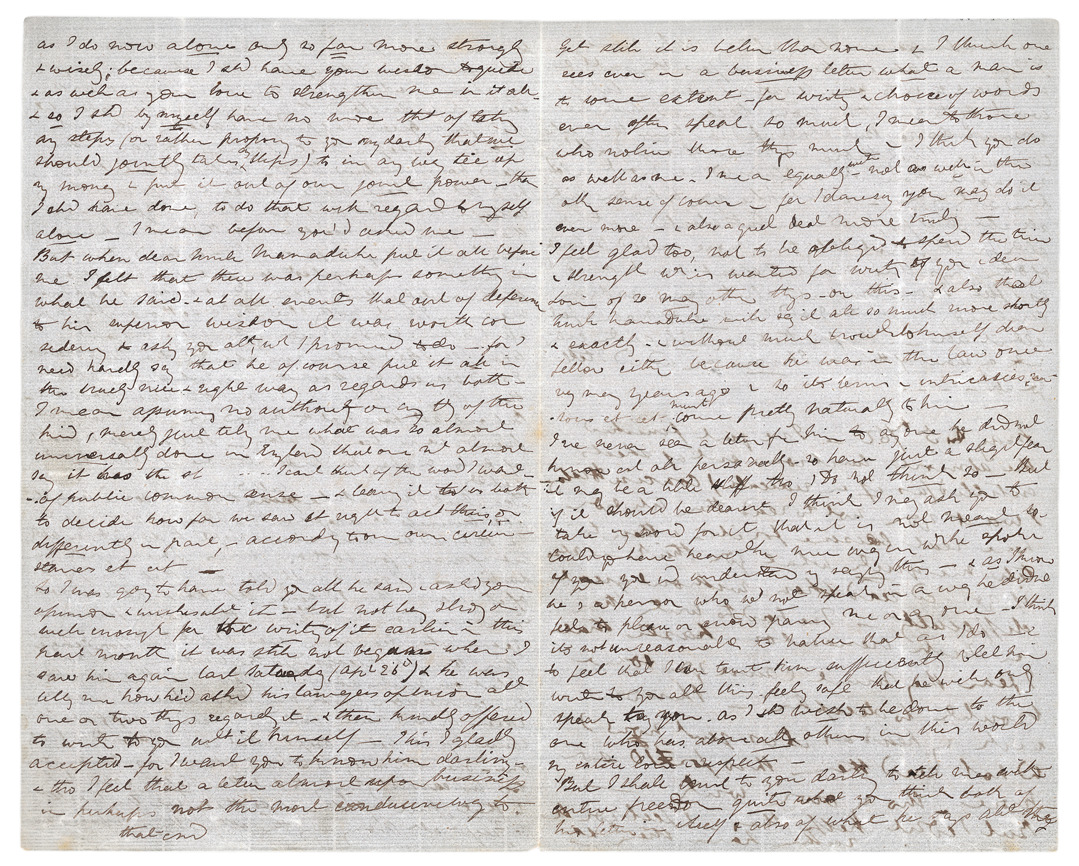 as I do now alone only so far more strongly
& wisely, because I shd have your wisdom to guide
& as well as your love to strengthen me in it all
& so I shd by myself have no more tht of taking
any steps (or rather proposing to you my darling that we
should jointly take steps) to in any way tie up
my money & put it out of our joint power – than
I shd have done, to do that with regard to myself
alone – I mean before you'd asked me –
But when dear Uncle Marmaduke put it all before
me I felt that there was perhaps something in
what he said – & at all events that out of deference
to his superior wisdom it was worth con
sidering & ask you all wh I promised to do – for I
need hardly say that he of course put it all in
the truly nice & right way as regards us both –
I mean assuming no authority or anything of the
kind, merely just telling me what was so almost
universally done in England that one wd almost
say it was the st ... I can't think of the word I want
– of public common sense – & leaving it to us both
to decide how far we saw it right to act thus, or
differently in part, – according to our own circum
stances et cet –
So I was going to have told you all he said & asked your
opinion & wish about it – but not being strong or
well enough for the writing of it earlier in this
month it was still not begun when I
saw him again last Saturday (Apl 26th) & he was
telling me how he'd asked his lawyers opinion all
one or two things regarding it – & then kindly offered
to write to you abt it himself – This I gladly
accepted – for I want you to know him darling –
& tho I feel that a letter almost upon business
is perhaps not the most conducive thing to
that end
Yet still it is better than none – & I think one
sees even in a business letter what a man is
to some extent – for writing & choice of words
even often speak so much, I mean to those
who notice those things much – & I think you do
as well as me – I mean equally with – not as well in the
other sense of course – for I daresay you may do it
even more – & also a good deal more truly –
I feel glad too, not to be obliged to spend the time
& strength wh is wanted for writing to you, dear
love of so many other things – on this – & also that
Uncle Marmaduke will say it all so much more shortly
& exactly – & without much trouble to himself dear
fellow either because he was in the law once
very many years ago & so its terms & intricacies
et cet – must come pretty naturally to him –
I've never seen a letter from him to anyone he did not
know at all personally – so have just a slight fear
it may be a little stiff tho' I do not think so – But
if it should be dearest I think I may ask you to
take my word for it that it is not meant so –
could you have heard the nice way in wh he spoke
of you you wd understand my saying this – & as I know
he's a person who wd not speak in a way he did not
feel to please or annoy me or any one – I think
it's not unreasonable to value that as I do – &
to feel that I can trust him sufficiently to let him
write to you all this feeling safe that he will only
speak to you as I shd wish to be done to the
one who has above all others in this world
my entire love & respect –
But I shall trust to you darling to tell me with
entire freedom quite what you think both of
his letter itself & also of what he says all the